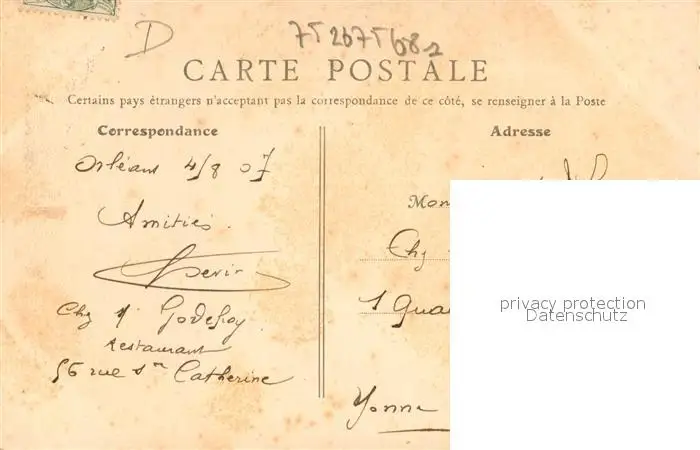 D
CARTE POSTALE
Certains pays étrangers n'acceptant pas la correspondance de ce côté, se renseigner à la Poste
Correspondance
Orléans 4/8 07
Amitiés.
Chz M Godefroy
restaurant
56 rue Ste Catherine
Adresse
Mon
Chz
1 Qua
Yonne
privacy protection
Datenschutz